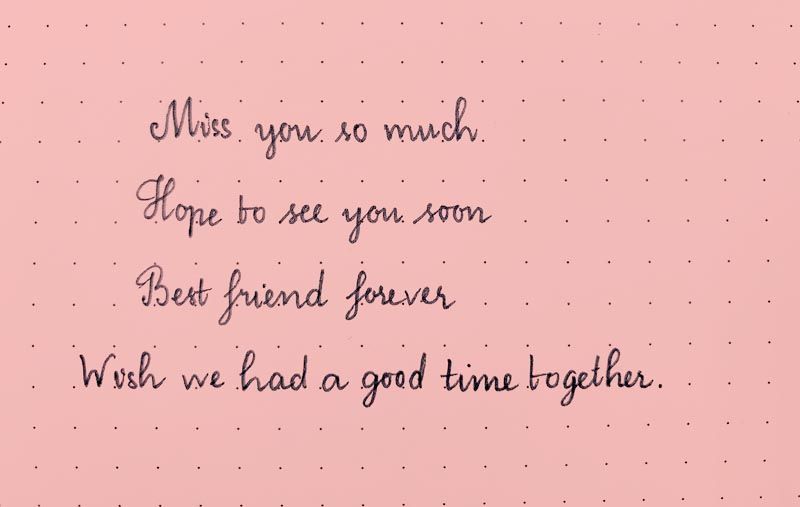 Miss you so much
Hope to see you soon
Best friend forever
Wish we had a good time together.